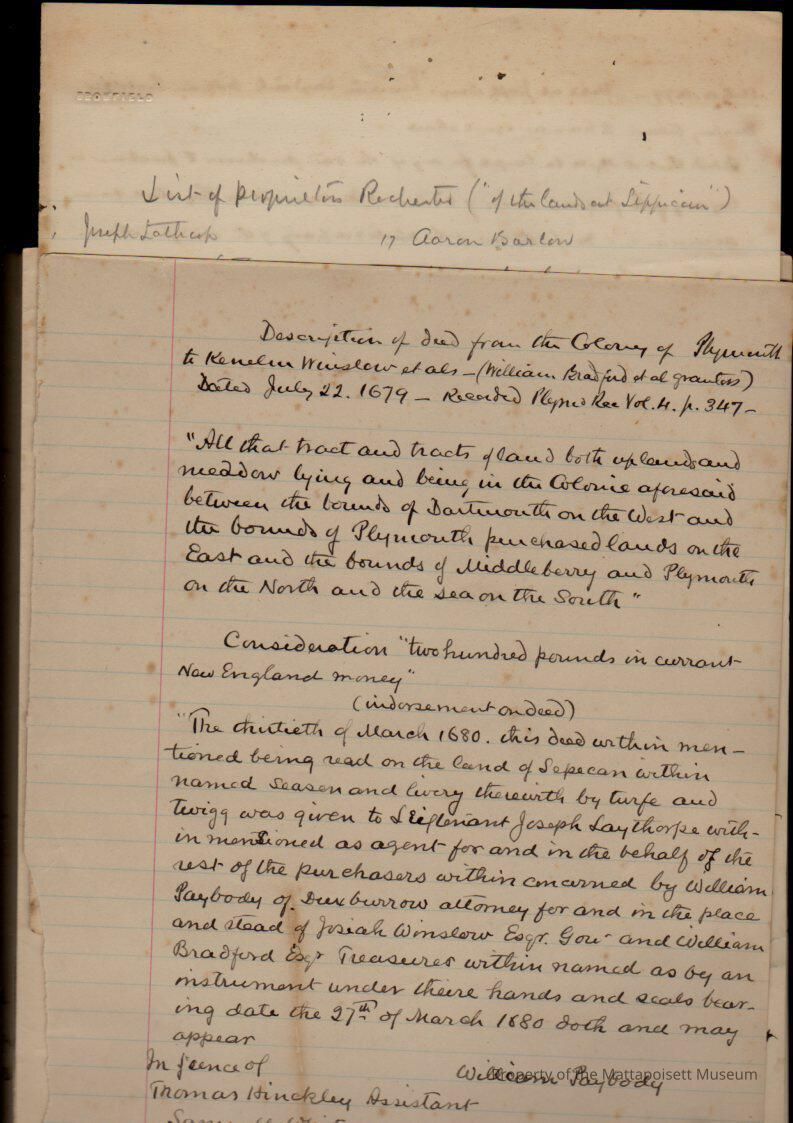 BROOKFIELD
List of proprietors Rochester ("of the lands at Sippican")
Joseph Lathrop 17 Aaron Barlow
Description of deed from the Colony of Plymouth
to Kenelm Winslow et als – (William Bradford et al grantors)
Dated July 22. 1679 – Recorded Plym Rec Vol. 4. p. 347 –
"All that tract and tracts of land both upland and
meaddow lying and being in the Colonie aforesaid
between the bounds of Dartmouth on the West and
the bounds of Plymouth purchased lands on the
East and the bounds of Middleberry and Plymouth
on the North and the sea on the South"
Consideration "two hundred pounds in currant
New England money"
(indorsement on deed)
"The thirtieth of March 1680. this deed within men–
tioned being read on the land of Sepecan within
named Season and livery therewith by turfe and
twigg was given to Leiftenant Joseph Laythorpe with–
in mentioned as agent for and in the behalf of the
rest of the purchasers within concarned by William
Paybody of Duxburrow attorney for and in the place
and stead of Josiah Winslow Esqr. Gour and William
Bradford Esqr Treasurer within named as by an
instrument under theire hands and seals bear–
ing date the 27th of March 1680 doth and may
appear
In psence of William Paybody
Property of the Mattapoisett Museum
Thomas Hinckley Assistant